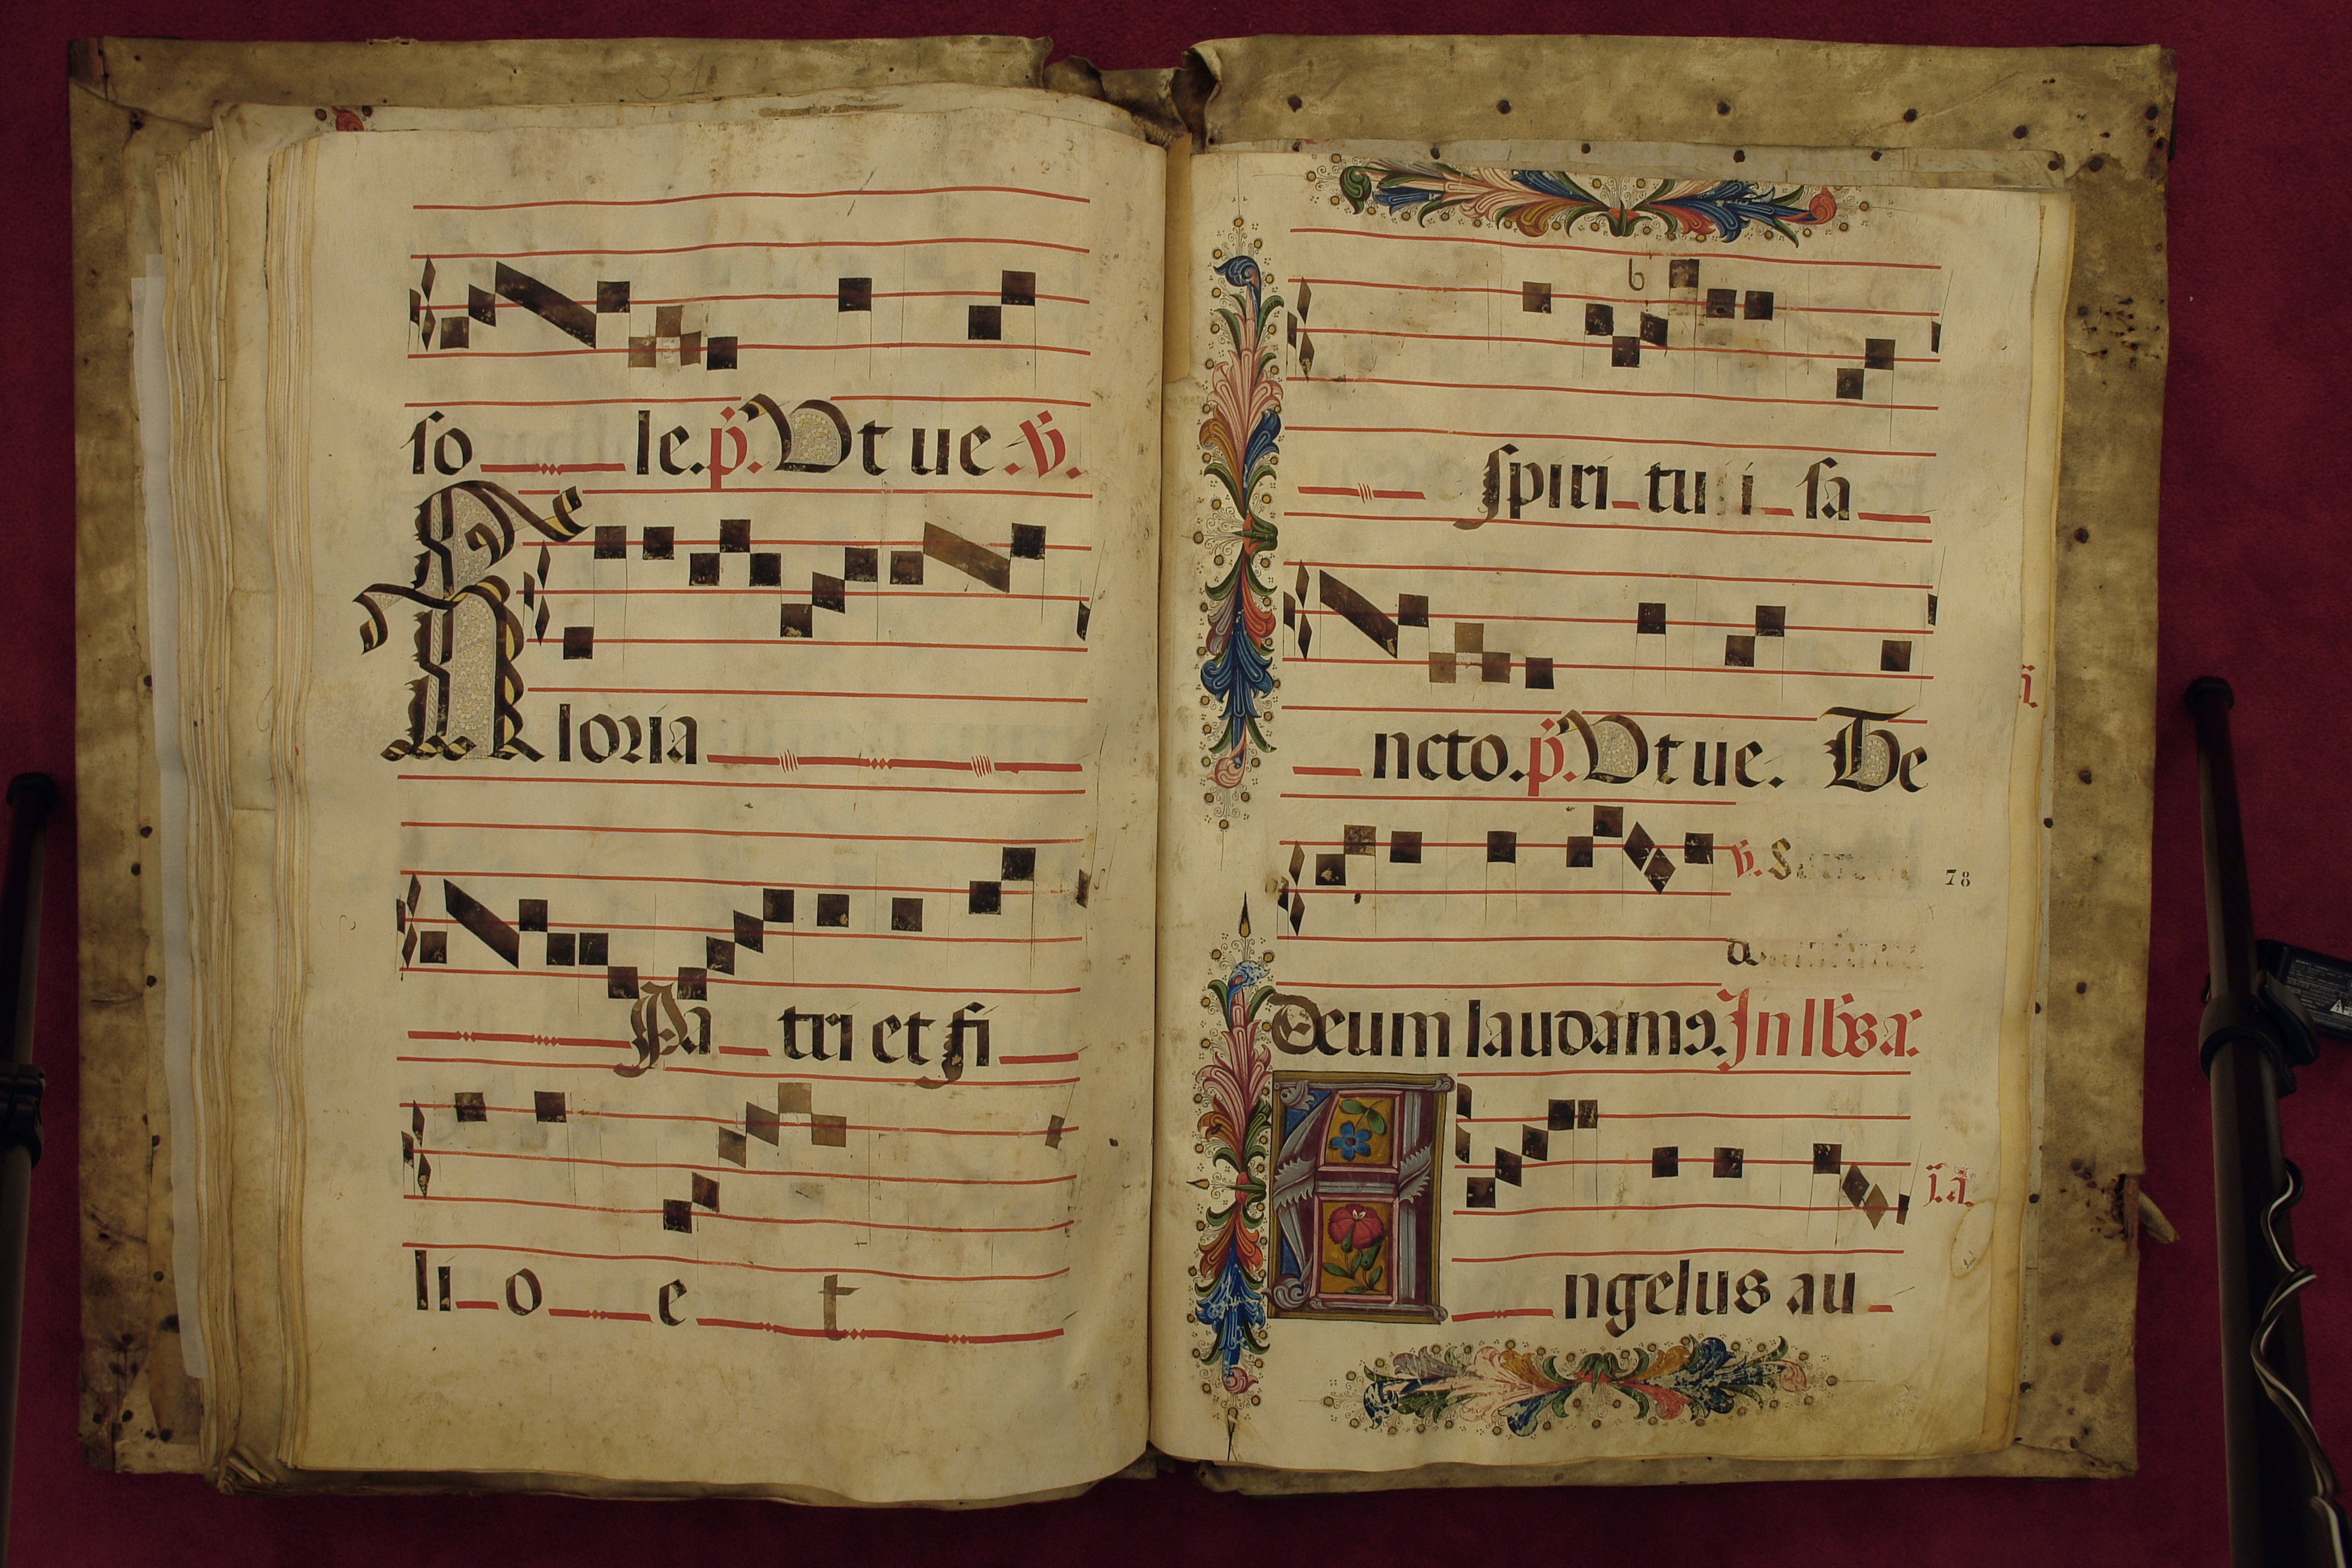 so le. p. Ut ue. v.
Gloria
Pa tri et fi
li o e t
spiri tu i sa
ncto. p. Ut ue. Te
78
Deum laudam9. In lbs a.
Angelus au